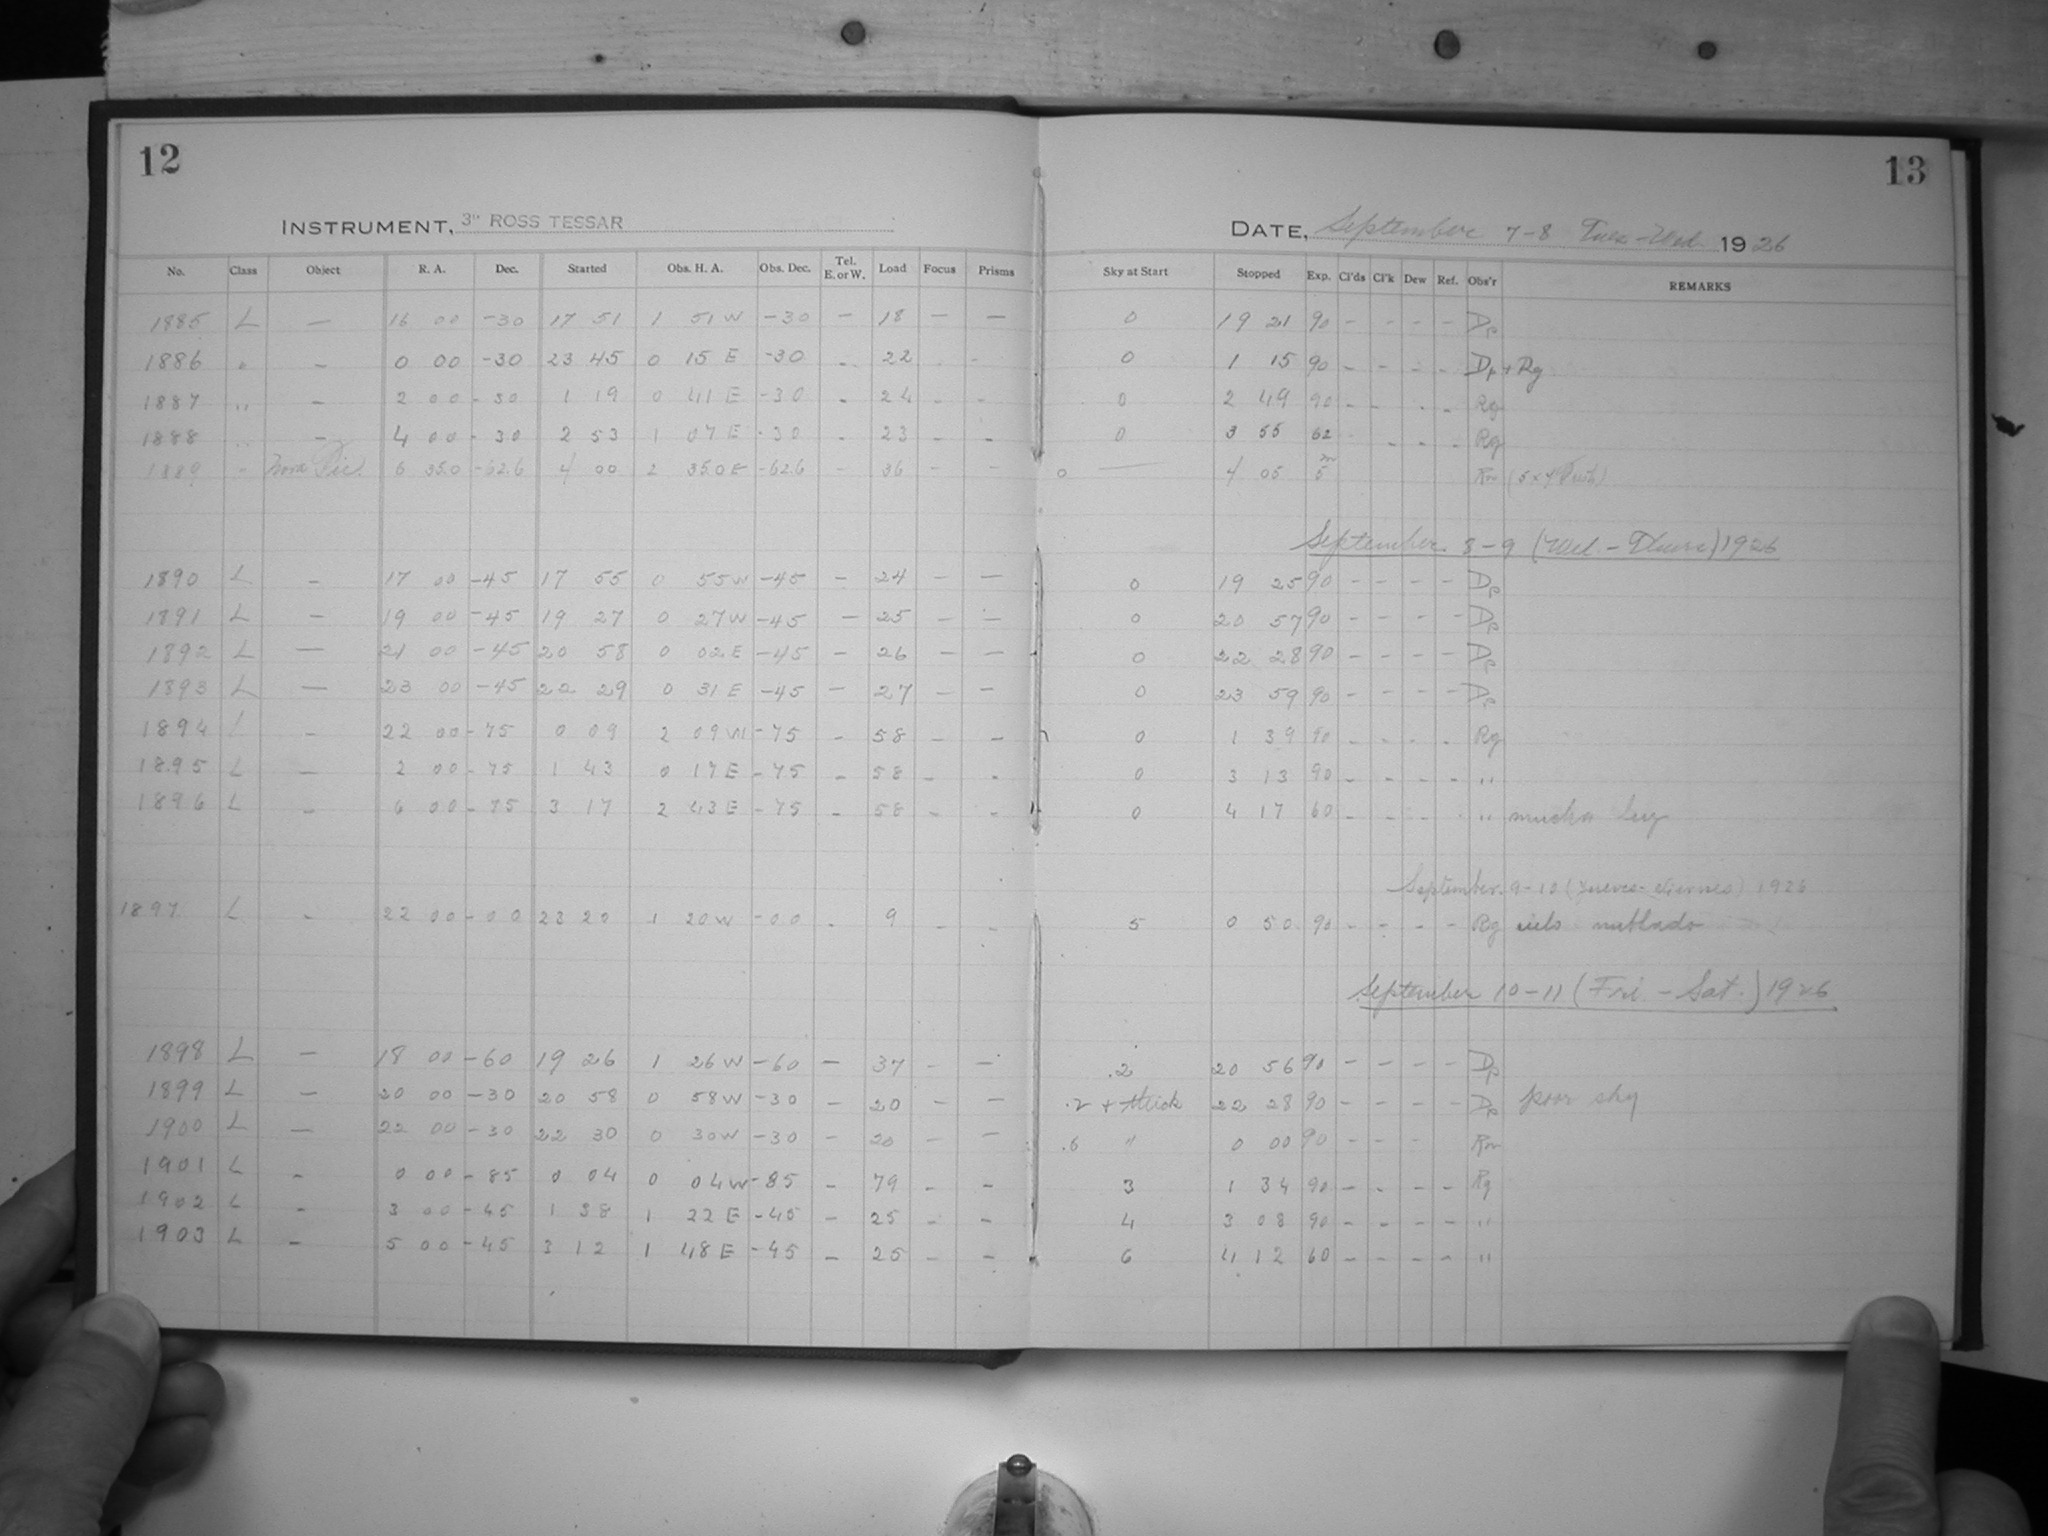 12
13
INSTRUMENT, 3" ROSS TESSAR
DATE, September 7-8 Tues-Wed. 1926
No. Class Object R. A. Dec. Started Obs. H. A. Obs. Dec. Tel. E. or W. Load Focus Prisms Sky at Start Stopped Exp. Cl'ds Cl'k Dew Ref. Obs'r REMARKS
1885 L — 16 00 -30 17 51 1 51 W -30 — 18 — — 0 19 21 90 - - - - Dp
1886 " — 0 00 -30 23 45 0 15 E -30 - 22 - - 0 1 15 90 - - - - Dp + Rg
1887 " - 2 00 -30 1 19 0 41 E -30 - 24 - - 0 2 49 90 - - - - Rg
1888 " - 4 00 -30 2 53 1 07 E -30 - 23 - - 0 3 55 62 - - - - Rg
1889 - Nova Pic. 6 35.0 -62.6 4 00 2 35.0 E -62.6 - 36 - - 0 — 4 05 5m
September 8-9 (Wed - Thurs) 1926
1890 L - 17 00 -45 17 55 0 55 W -45 - 24 - — 0 19 25 90 - - - - Dp
1891 L — 19 00 -45 19 27 0 27 W -45 — 25 — — 0 20 57 90 - - - - Dp
1892 L — 21 00 -45 20 58 0 02 E -45 - 26 — — 0 22 28 90 - - - - Dp
1893 L — 23 00 -45 22 29 0 31 E -45 — 27 - — 0 23 59 90 - - - - Dp
1894 L - 22 00 -75 0 09 2 09 W -75 - 58 - - 0 1 39 90 - - - - Rg
1895 L - 2 00 -75 1 43 0 17 E -75 - 58 - - 0 3 13 90 - - - - "
1896 L - 6 00 -75 3 17 2 43 E -75 - 58 - - 0 4 17 60 - - - - " mucha luz
September 9-10 (Jueves - Viernes) 1926
1897 L - 22 00 -00 23 20 1 20 W -00 - 9 - - 5 0 50 90 - - - - Rg cielo nublado
September 10-11 (Fri. - Sat.) 1926
1898 L — 18 00 -60 19 26 1 26 W -60 — 37 - — .2 20 56 90 - - - - Dp
1899 L — 20 00 -30 20 58 0 58 W -30 - 20 — — .2 + thick 22 28 90 - - - - Dp poor sky
1900 L — 22 00 -30 22 30 0 30 W -30 - 20 - — .6 " 0 00 90 - - -
1901 L - 0 00 -85 0 04 0 04 W -85 - 79 - - 3 1 34 90 - - - - Rg
1902 L - 3 00 -45 1 38 1 22 E -45 - 25 - - 4 3 08 90 - - - - "
1903 L - 5 00 -45 3 12 1 48 E -45 - 25 - - 6 4 12 60 - - - - "